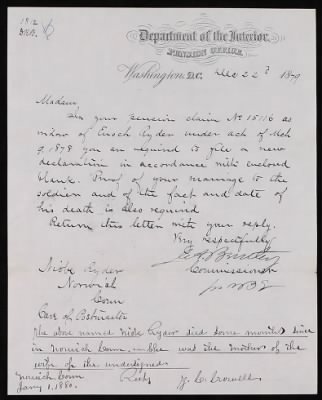 1812
Department of the Interior,
PENSION OFFICE,
Washington, D.C. Dec 22d 1879
Madam,
In your pension claim No 15116 as
widow of Enoch Ryder under act of Mch
9. 1878 you are required to file a new
declaration in accordance with enclosed
blank. Proof of your marriage to the
soldier and of the fact and date of
his death is also required
Return this letter with your reply.
Very respectfully
Commissioner
Niobe Ryder
Norwich
Conn
Care of Postmaster
The above named Niobe Ryder died some months since
in Norwich Conn. - She was the mother of the
wife of the undersigned
Norwich Conn Resp
Jany 1. 1880. Y. C. Crowell